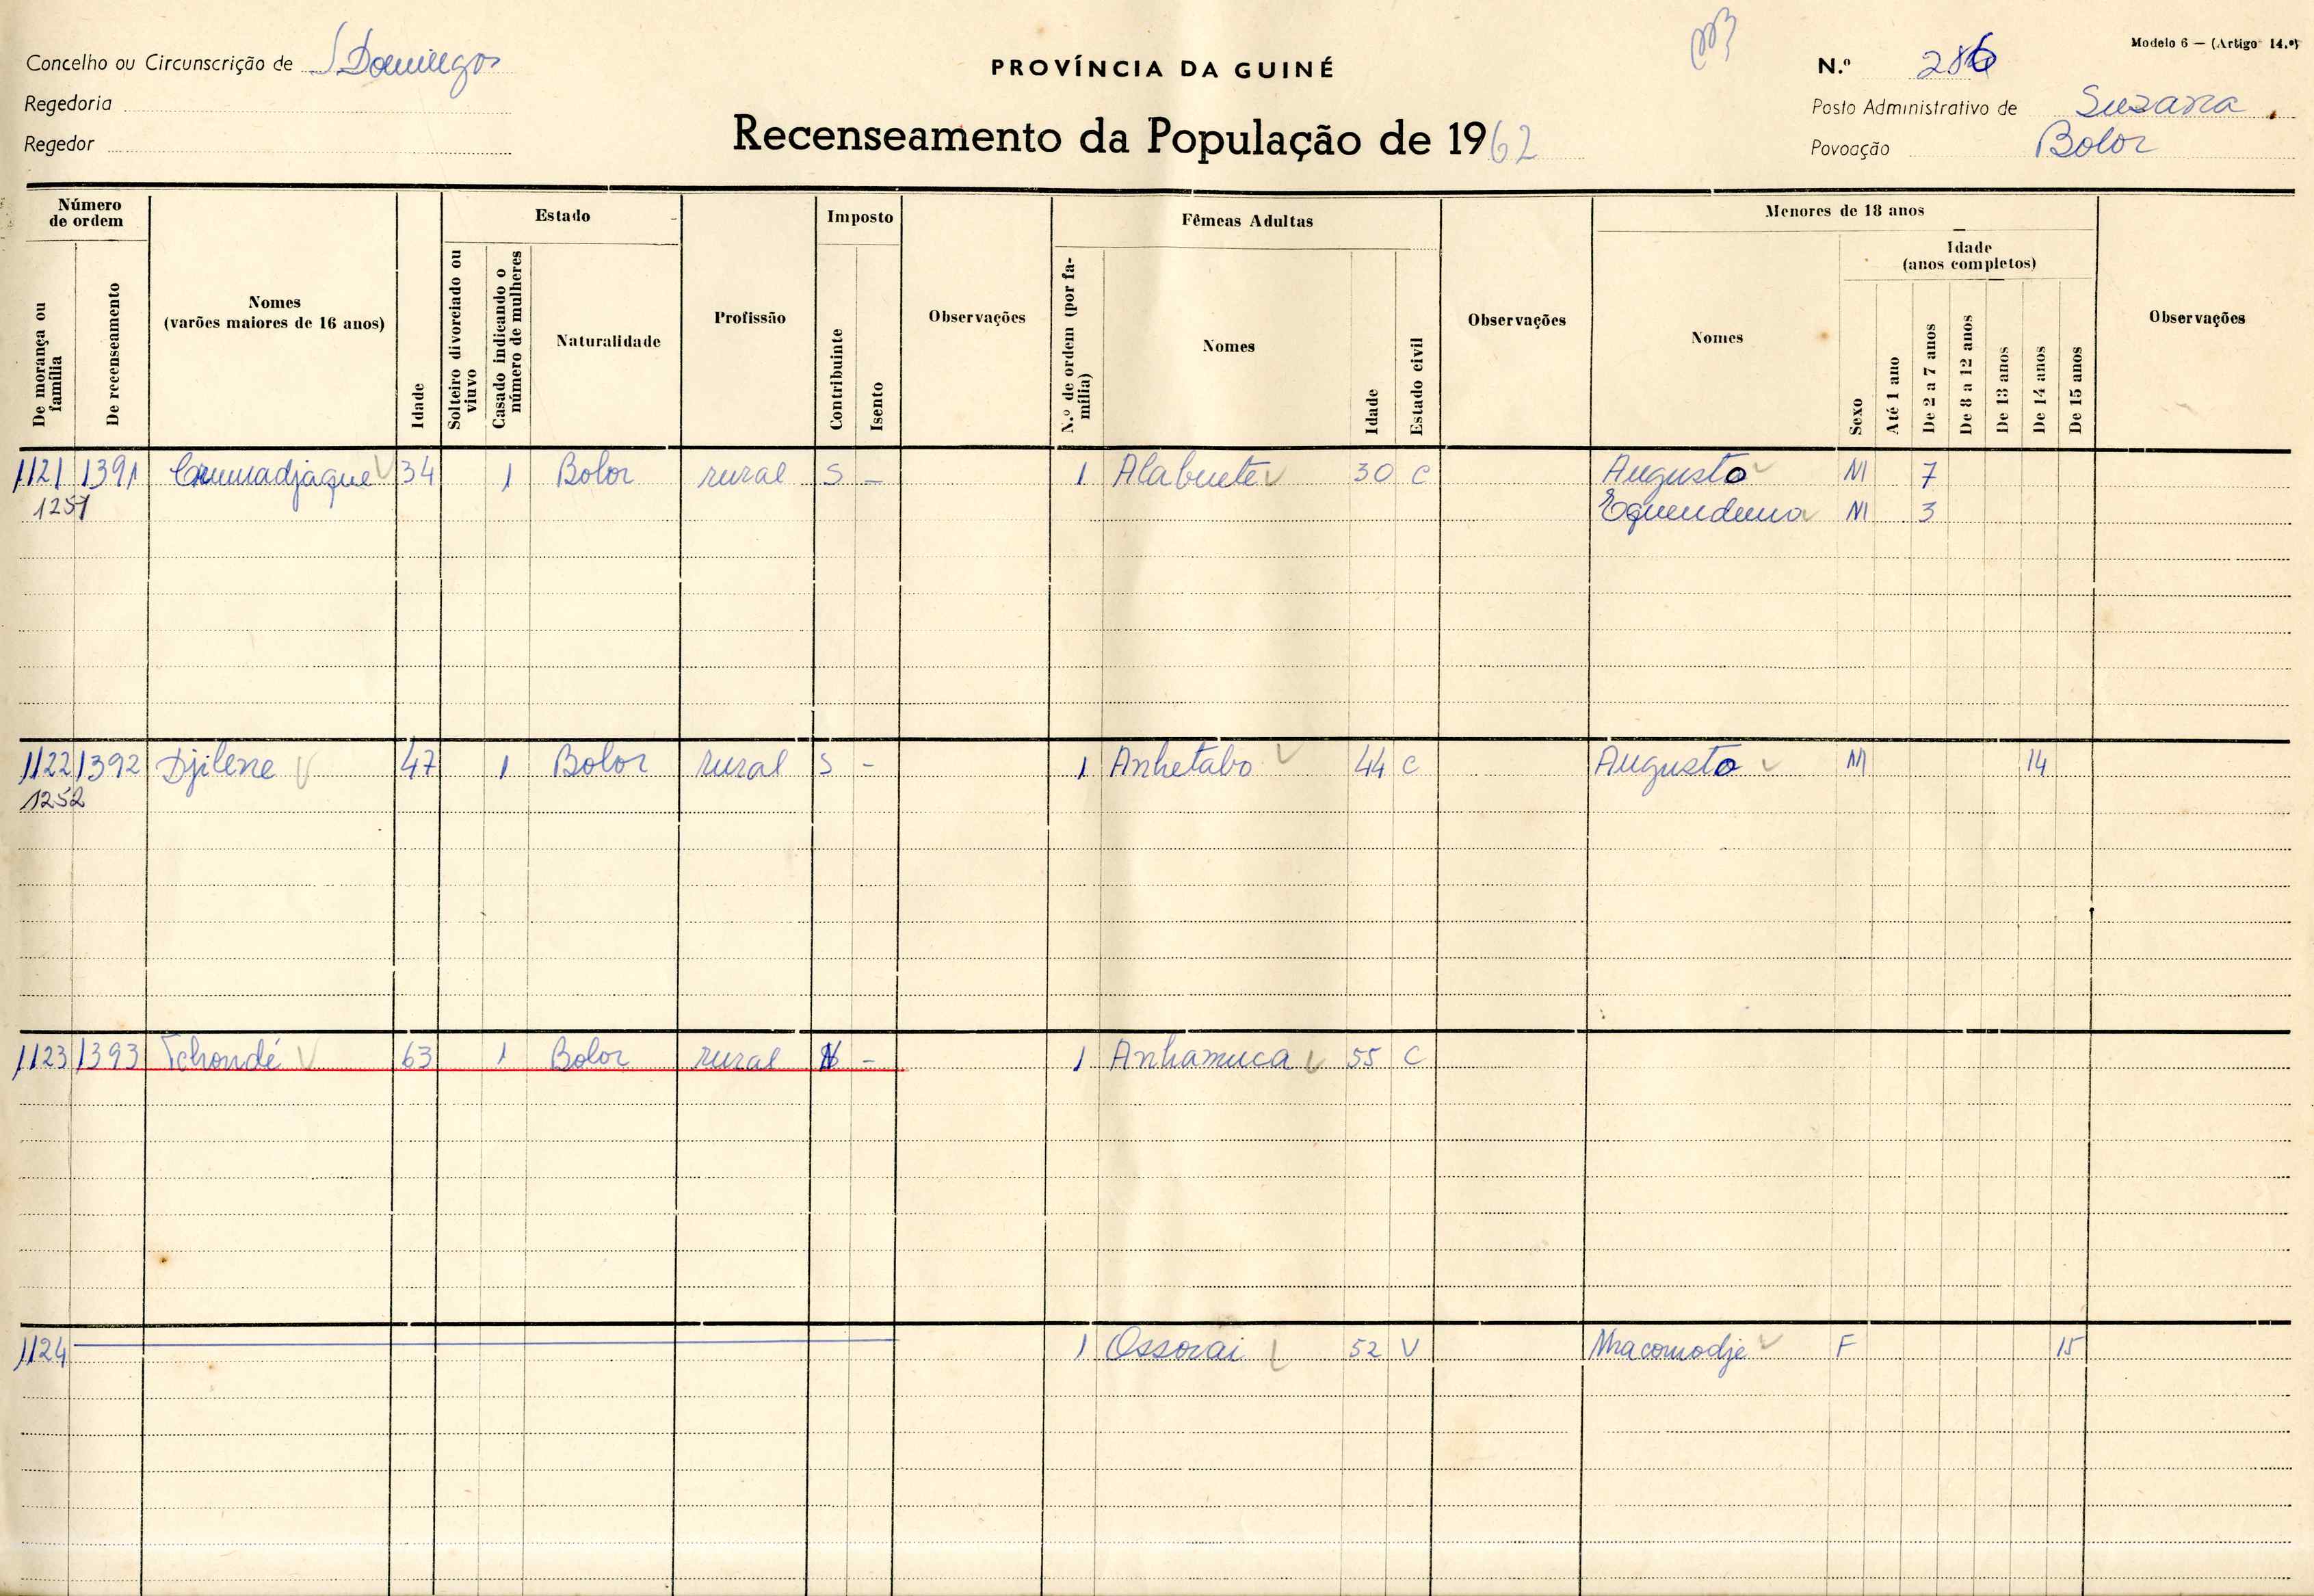 Modelo 6 — (Artigo 14.º)
Concelho ou Circunscrição de S Domingos
PROVÍNCIA DA GUINÉ
N.º 286
Regedoria
Posto Administrativo de Suzana
Regedor
Recenseamento da População de 1962
Povoação Bolor
Número de ordem
De morança ou família
De recenseamento
Nomes
(varões maiores de 16 anos)
Idade
Estado
Solteiro divorciado ou viuvo
Casado indicando o número de mulheres
Naturalidade
Profissão
Imposto
Contribuinte
Isento
Observações
Fêmeas Adultas
N.º de ordem (por família)
Nomes
Idade
Estado civil
Observações
Menores de 18 anos
Nomes
Idade
(anos completos)
Sexo
Até 1 ano
De 2 a 7 anos
De 8 a 12 anos
De 13 anos
De 14 anos
De 15 anos
Observações
1121 1391 34 1 Bolor rural S — 1 Alabuete 30 C Augusto M 7
1251 Equenduma M 3
1122 1392 Djilene 47 1 Bolor rural S - 1 Anhetabo 44 C Augusto M 14
1252
1123 1393 Tchondé 63 1 Bolor rural N - 1 Anhamuca 55 C
1124 1 Ossorai 52 V Macomodje F 15